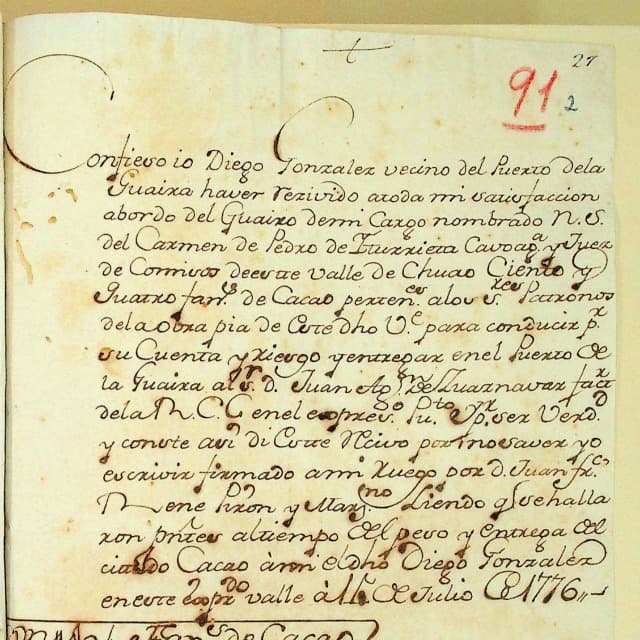 27
91
2
Confieso io Diego Gonzalez vecino del Puerto dela
Guaira haver rezivido atoda mi satisfaccion
abordo del Guairo demi Cargo nombrado N. S.
del Carmen de Pedro de Iturrieta Cavoapª y Juez
de Comisos deeste valle de Chuao Ciento y
Quatro fans de Cacao perteneses alos sres Patronos
dela obra pia de Este dho Ve para conducir pr
su Cuenta y riesgo y entregar enel Puerto de
la Guaira al sr d. Juan Agn de Zuaznavar factr
dela R. C. G enel expreso Pto Y pr ser Verd
y conste asi di Este Recivo por no saver yo
escrivir firmado a mi Ruego por d. Juan frco
Rene Piron y Liendo q se halla
ron pntes altiempo del peso y entrega del
citado Cacao à mi el dho Diego Gonzalez
eneste valle à de Julio de 1776
fans de Cacao